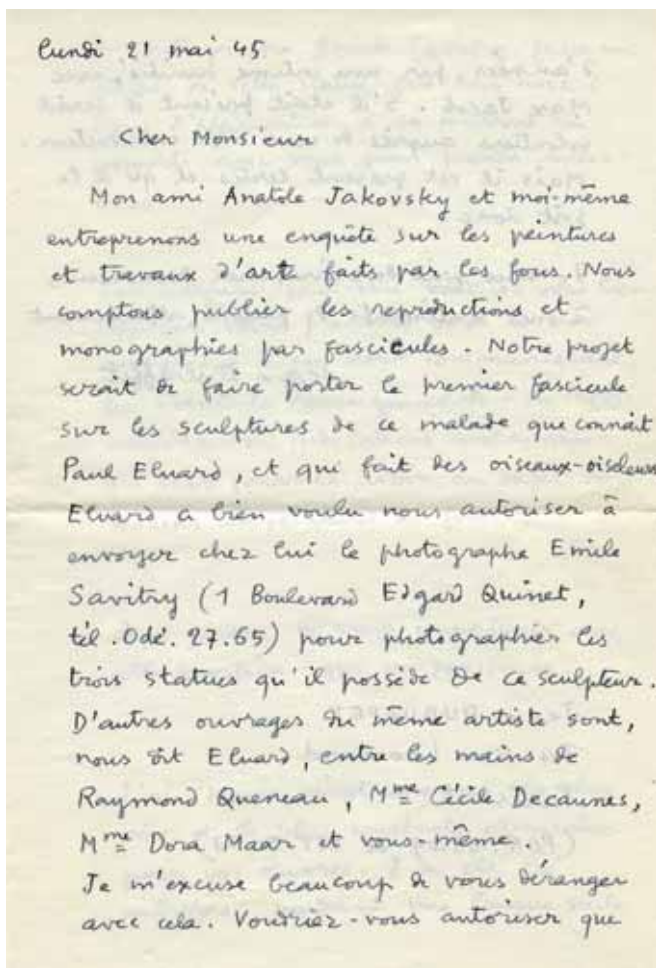 lundi 21 mai 45
Cher Monsieur
Mon ami Anatole Jakovsky et moi-même
entreprenons une enquête sur les peintures
et travaux d'art faits par les fous. Nous
comptons publier les reproductions et
monographies par fascicules. Notre projet
serait de faire porter le premier fascicule
sur les sculptures de ce malade que connait
Paul Eluard, et qui fait des oiseaux-oiseleurs
Eluard a bien voulu nous autoriser à
envoyer chez lui le photographe Emile
Savitry (1 Boulevard Edgard Quinet,
tél. Odé. 27.65) pour photographier les
trois statues qu'il possède de ce sculpteur.
D'autres ouvrages du même artiste sont,
nous dit Eluard, entre les mains de
Raymond Queneau, Mme Cécile Decaunes,
Mme Dora Maar et vous-même.
Je m'excuse beaucoup de vous déranger
avec cela. Voudriez-vous autoriser que